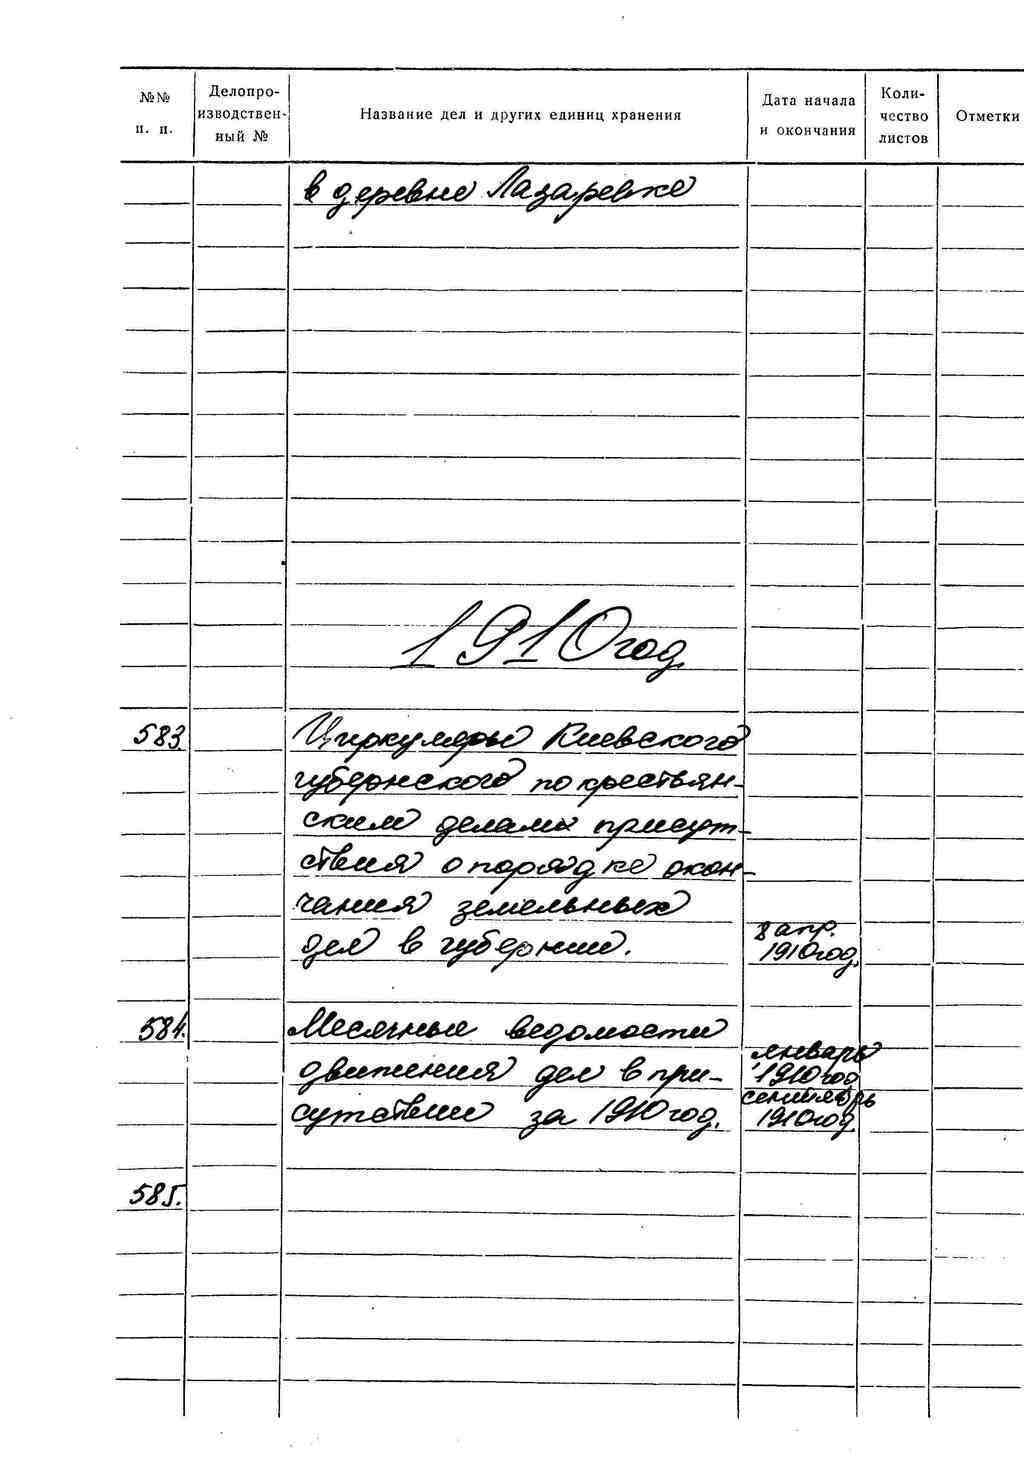 №№
п. п.
Делопро-
изводствен-
ный №
Название дел и других единиц хранения
Дата начала
и окончания
Коли-
чество
листов
Отметки
в деревне Лазаревке
1910 год
583
Циркуляры Киевского
губернского по крестьян-
ским делам присут-
ствия о порядке окон-
чания земельных
дел в губернии.
8 апр.
1910 год.
584.
Месячные ведомости
движения дел в при-
сутствии за 1910 год.
январь
1910 год
сентябрь
1910 год.
585.